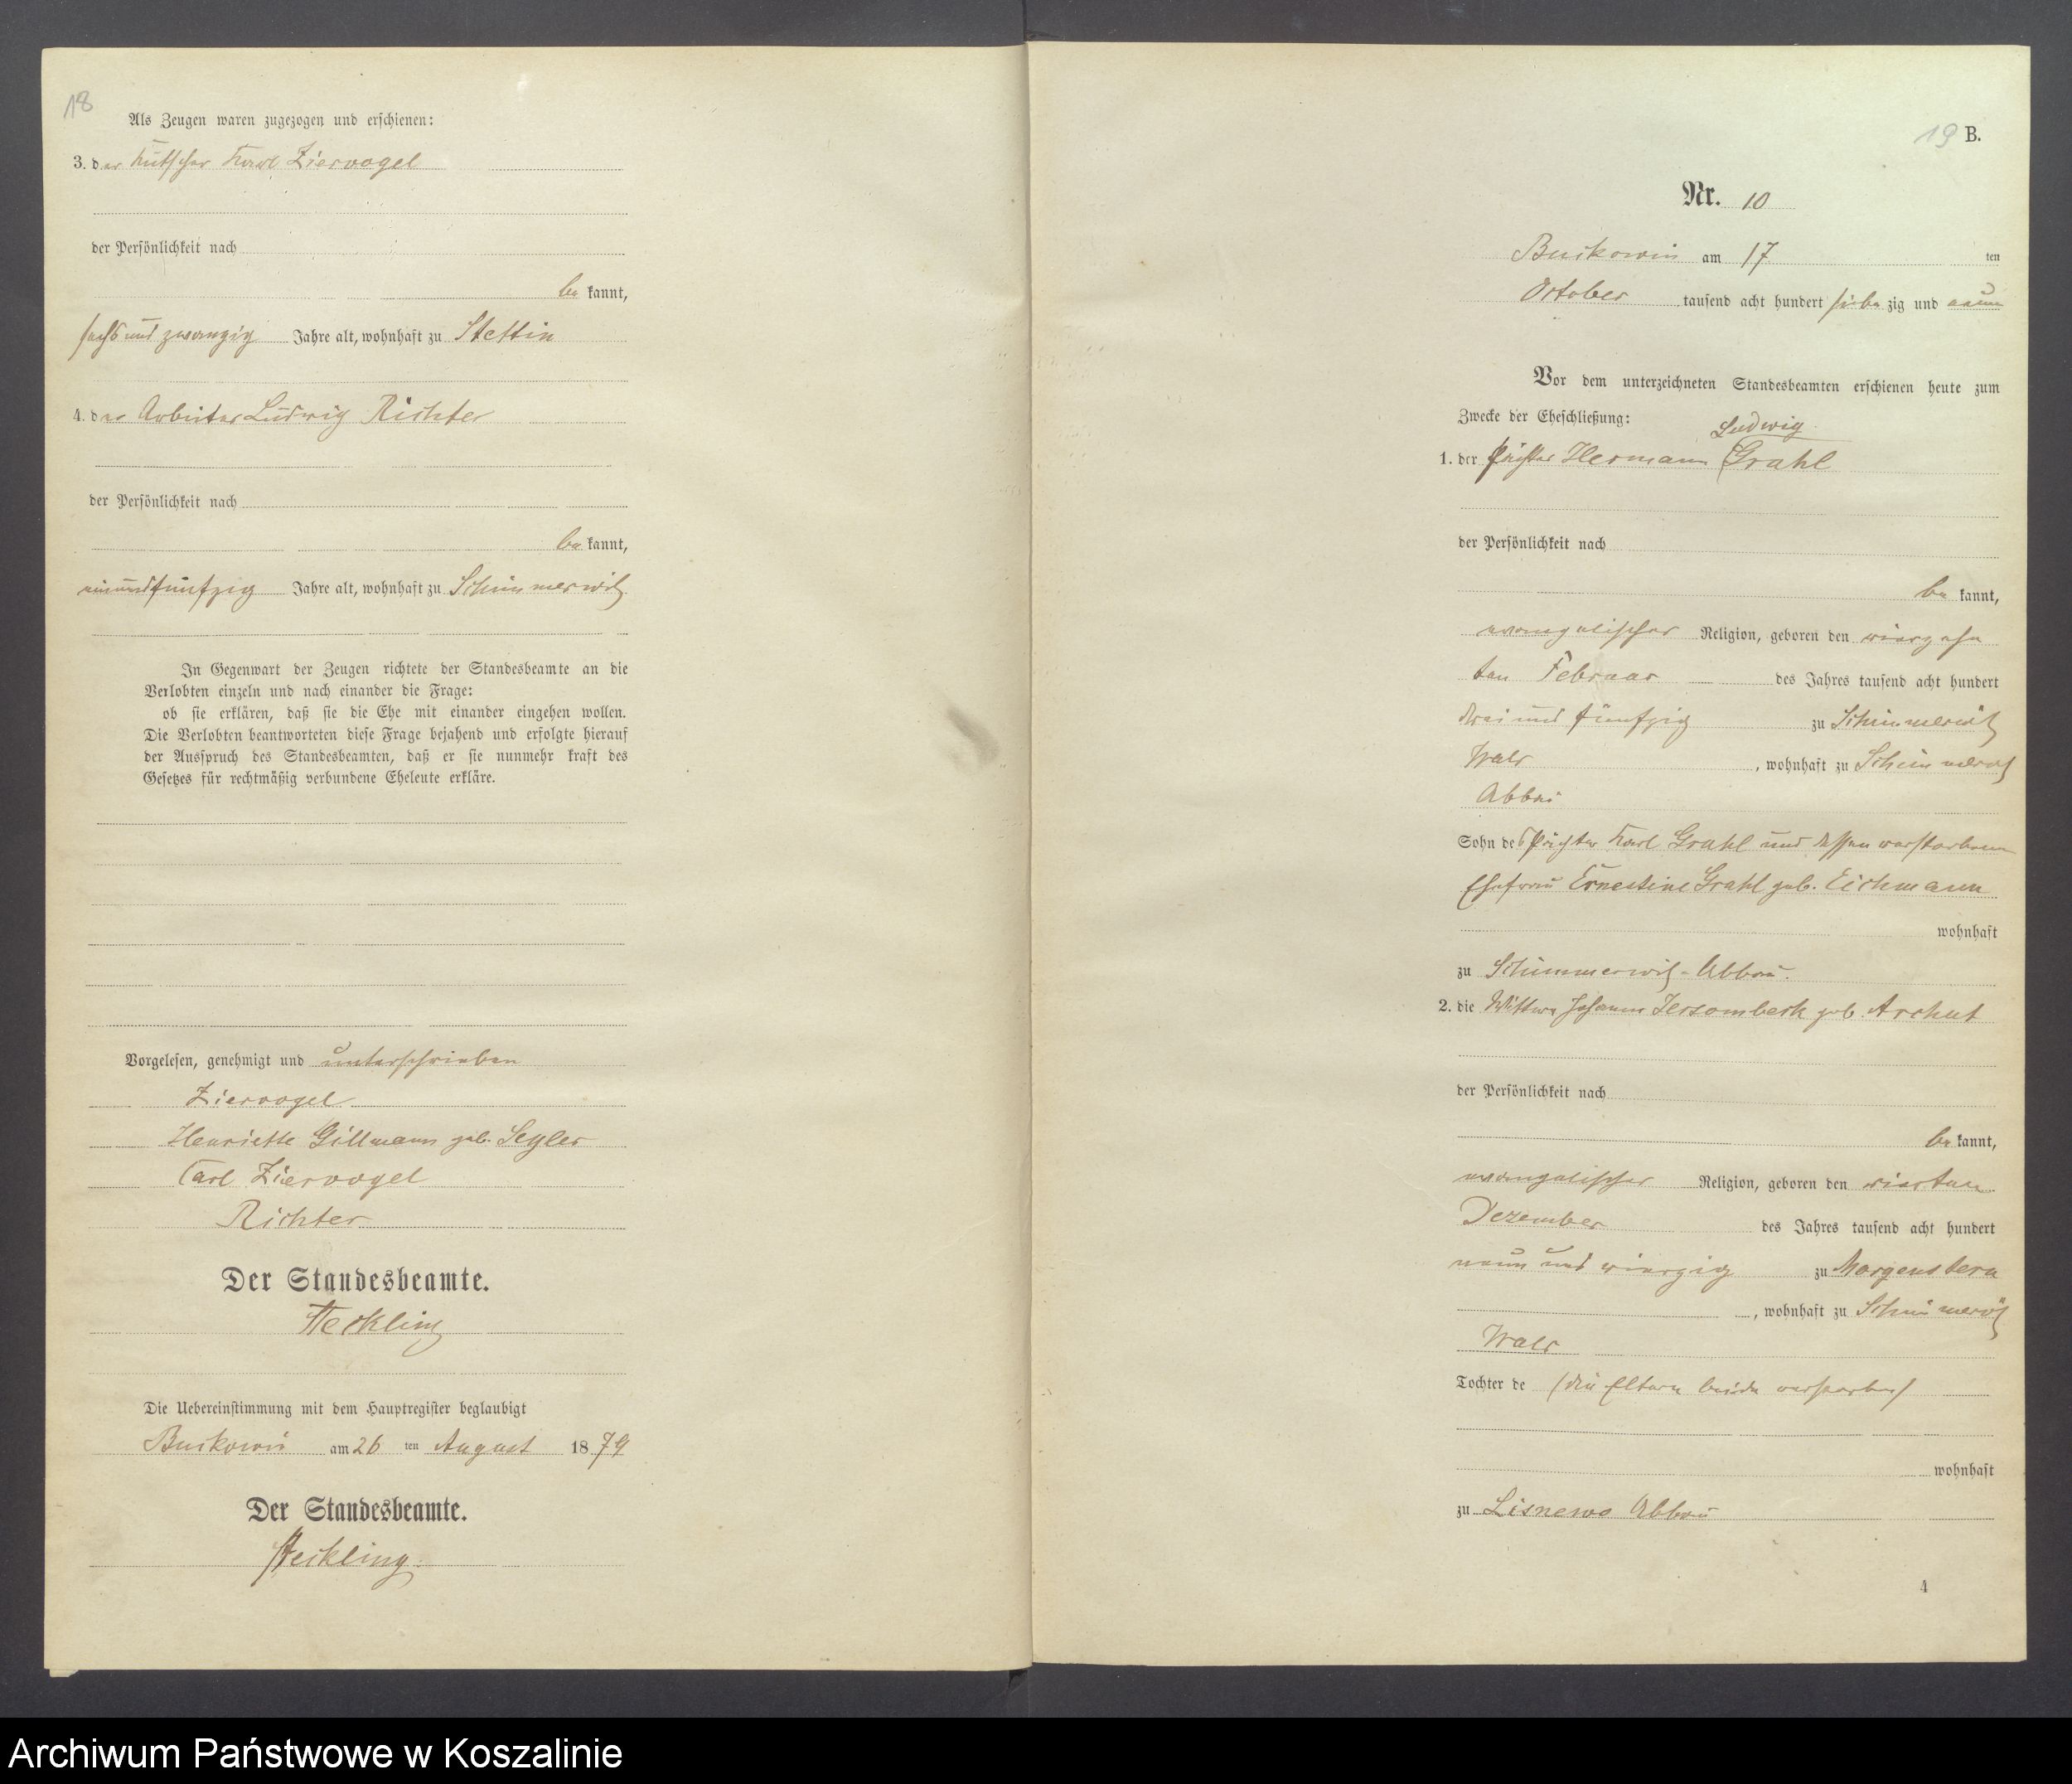 18
Als Zeugen waren zugezogen und erschienen:
3. der Kutscher Karl Ziervogel
der Persönlichkeit nach
be kannt,
sechs und zwanzig Jahre alt, wohnhaft zu Stettin
4. der Arbeiter Ludwig Richter
der Persönlichkeit nach
be kannt,
einundfünfzig Jahre alt, wohnhaft zu Schimmerwitz
In Gegenwart der Zeugen richtete der Standesbeamte an die
Verlobten einzeln und nach einander die Frage:
ob sie erklären, daß sie die Ehe mit einander eingehen wollen.
Die Verlobten beantworteten diese Frage bejahend und erfolgte hierauf
der Ausspruch des Standesbeamten, daß er sie nunmehr kraft des
Gesetzes für rechtmäßig verbundene Eheleute erkläre.
Vorgelesen, genehmigt und unterschrieben
Ziervogel
Henriette Gillmann geb. Segler
Carl Ziervogel
Richter
Der Standesbeamte.
Heckling
Die Uebereinstimmung mit dem Hauptregister beglaubigt
Buckowin am 26 ten August 1879
Der Standesbeamte.
Heckling.
19 B.
Nr. 10
Buckowin am 17 ten
October tausend acht hundert sieben zig und neun
Vor dem unterzeichneten Standesbeamten erschienen heute zum
Zwecke der Eheschließung:
Ludwig
1. der Pächter Hermann Grahl
der Persönlichkeit nach
be kannt,
evangelischer Religion, geboren den vierzehn
ten Februar des Jahres tausend acht hundert
drei und fünfzig zu Schimmerwitz
Wald, wohnhaft zu Schimmerwitz
Abbau
Sohn des Pächter Karl Grahl und dessen verstorbenen
Ehefrau Ernestine Grahl geb. Eichmann
wohnhaft
zu Schimmerwitz-Abbau.
2. die Wittwe geb. Archut
der Persönlichkeit nach
be kannt,
evangelischer Religion, geboren den vierten
Dezember des Jahres tausend acht hundert
neun und vierzig zu Morgenstern
, wohnhaft zu Schimmerwitz
Wald
Tochter de (die Eltern beide verstorben)
wohnhaft
zu Lisnewo Abbau
4
Archiwum Państwowe w Koszalinie